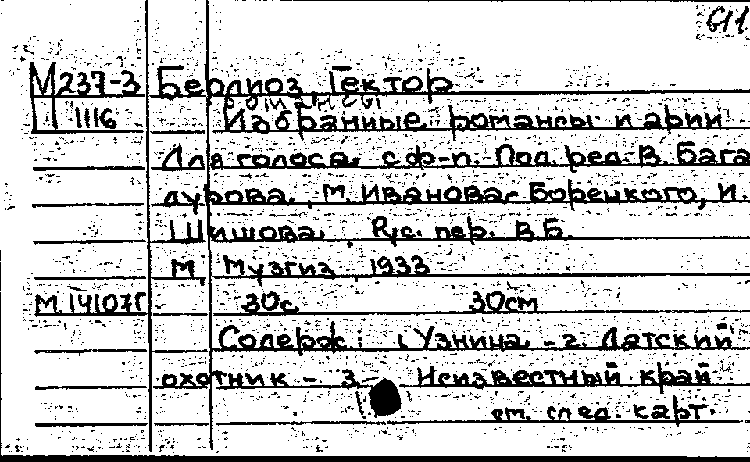 611
М237-3 Берлиоз Гектор
романсы
1116 Избранные романсы и арии
Для голоса с ф-п. Под. ред. В. Бага
дурова, М. Иванова-Борецкого, И.
Шишова. Рус. пер. В.Б.
М, Музгиз, 1933
М.14107Г 30с 30см
Содерж: 1 Узница - 2. Датский
охотник - 3. Неизвестный край
см. след. карт.